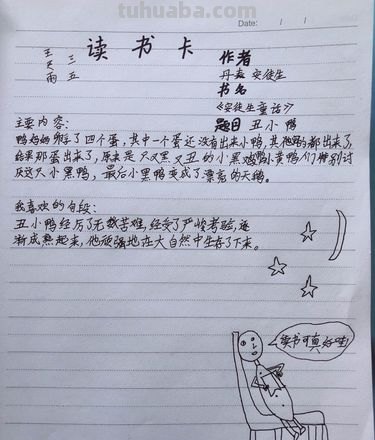 tuhuaba.com
Date: / /
读书卡
三五
王天雨
作者
丹麦 安徒生
书名
《安徒生童话》
题目 丑小鸭
主要内容:
鸭妈妈孵了四个蛋,其中一个蛋还没有出来小鸭,其他的都出来了,
结果那蛋出来了,原来是一只又黑又丑的小黑鸡鸭小黄鸭们特别讨
厌这只小黑鸭,最后小黑鸭变成了漂亮的天鹅。
我喜欢的句段:
丑小鸭经历了无数苦难,经受了严峻考验,逐
渐成熟起来,他顽强地在大自然中生存了下来。
读书可真好哇!